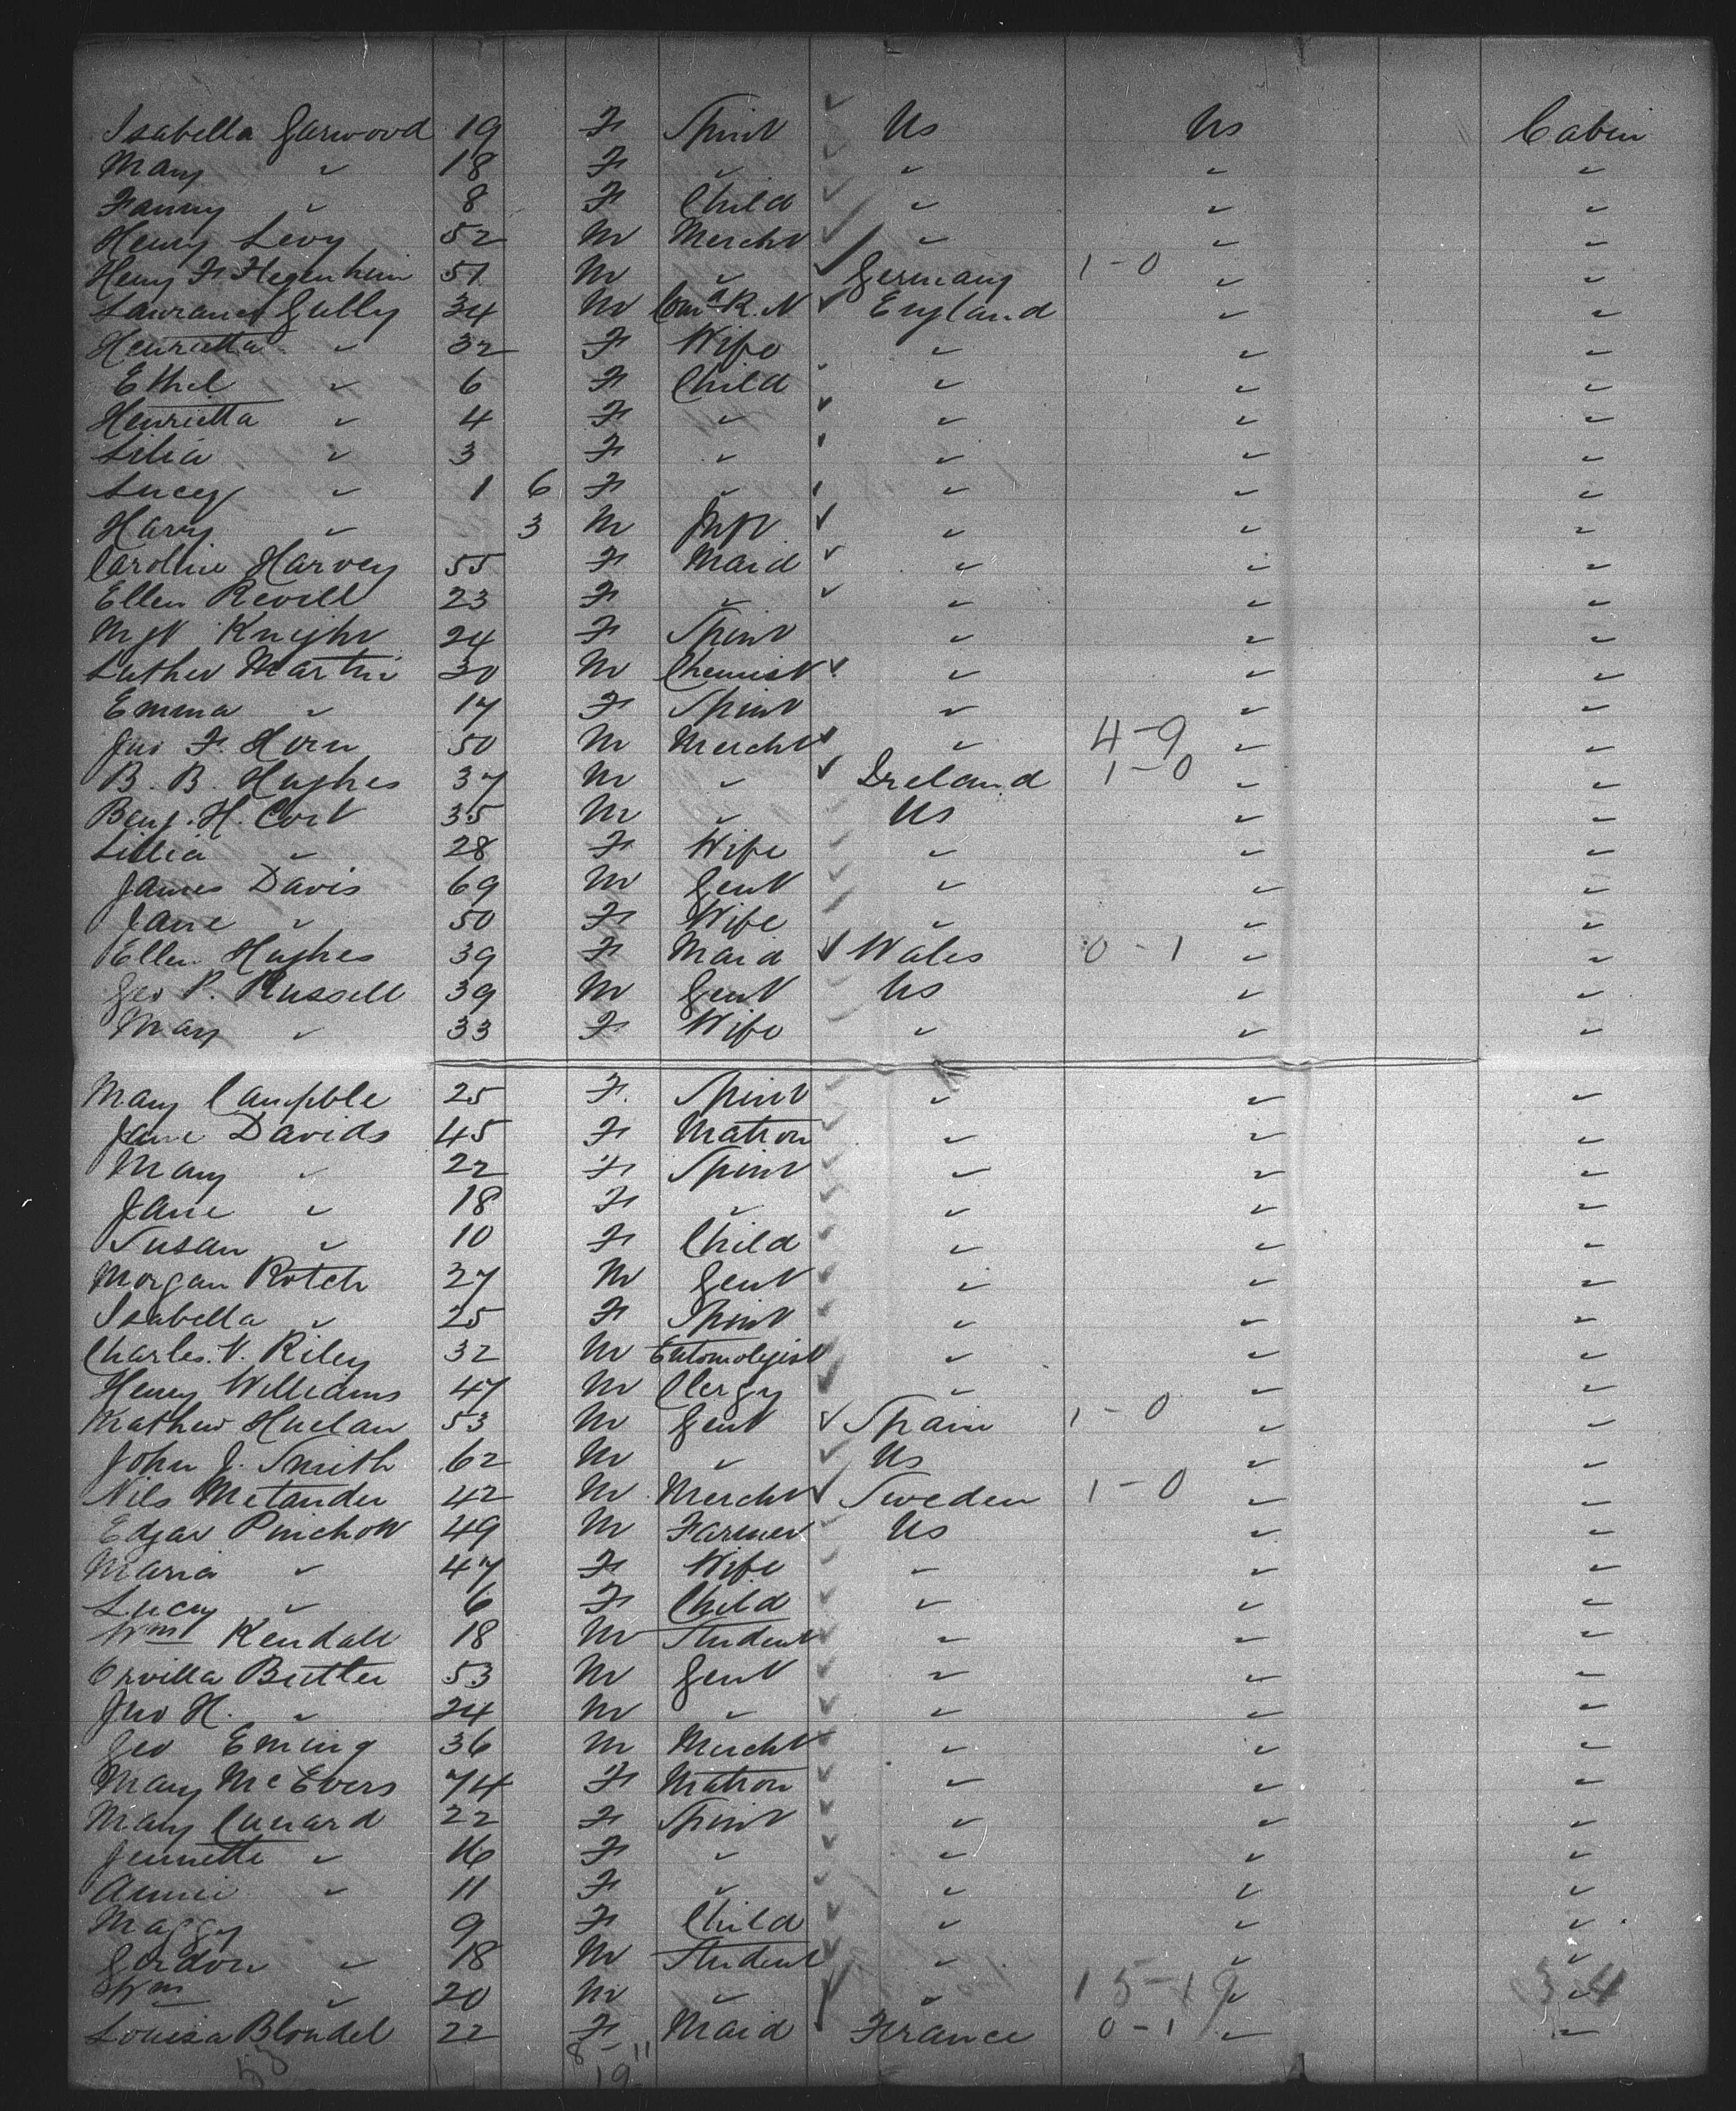 Isabella Garwood 19 F Spinr Us Us Cabin
Mary " 18 F " " " "
Fanny " 8 F Child " " "
Henry Levy 52 M Mercht " " "
Heny F. Hegenheim 51 M " Germany 1-0 " "
Gully 34 M R.N England " "
Henrietta " 32 F Wife " " "
Ethel " 6 F Child " " "
Henrietta " 4 F " " " "
Lilia " 3 F " " " "
Lucy " 1 6 F " " " "
Harry " 3 M Inft " " "
Caroline Harvey 55 F Maid " " "
Ellen Revell 23 F " " " "
Mgt Knight 24 F Spinr " " "
Luther Martin 30 M Chemist " " "
Emma " 17 F Spinr " " "
Jno F. Horn 50 M Mercht " 4-9 " "
B. B. Hughes 37 M " Ireland 1-0 " "
Benj. H. Cort 35 M " Us " "
Lillia " 28 F Wife " " "
James Davis 69 M Gent " " "
Jane " 50 F Wife " " "
Ellen Hughes 39 F Maid Wales 0-1 " "
Geo P. Russell 39 M Gent Us " "
Mary " 33 F Wife " " "
Mary Campble 25 F. Spinr " " "
Jane Davids 45 F Matron " " "
Mary " 22 F Spinr " " "
Jane " 18 F " " " "
Susan " 10 F Child " " "
Morgan Rotch 27 M Gent " " "
Isabella " 25 F Spinr " " "
Charles. V. Riley 32 M Entomologist " " "
Henry Williams 47 M Clergy " " "
Mathew Huelan 53 M Gent Spain 1-0 " "
John J. Smith 62 M " Us " "
Nils Metander 42 M Mercht Sweden 1-0 " "
Edgar Pinchott 49 M Farmer Us " "
Maria " 47 F Wife " " "
Lucy " 6 F Child " " "
Wm Kendall 18 M Student " " "
Orvilla Butler 53 M Gent " " "
Jno H. " 24 M " " " "
Geo Eming 36 M Mercht " " "
Mary McEvers 74 F Matron " " "
Mary Cunard 22 F Spinr " " "
Jennette " 16 F " " " "
Annie " 11 F " " " "
Maggy 9 F Child " " "
Gordon " 18 M Student " " "
Wm " 20 M " " 15-19 " 34
Louisa Blondel 22 F Maid France 0-1 " "
53 8-11
19